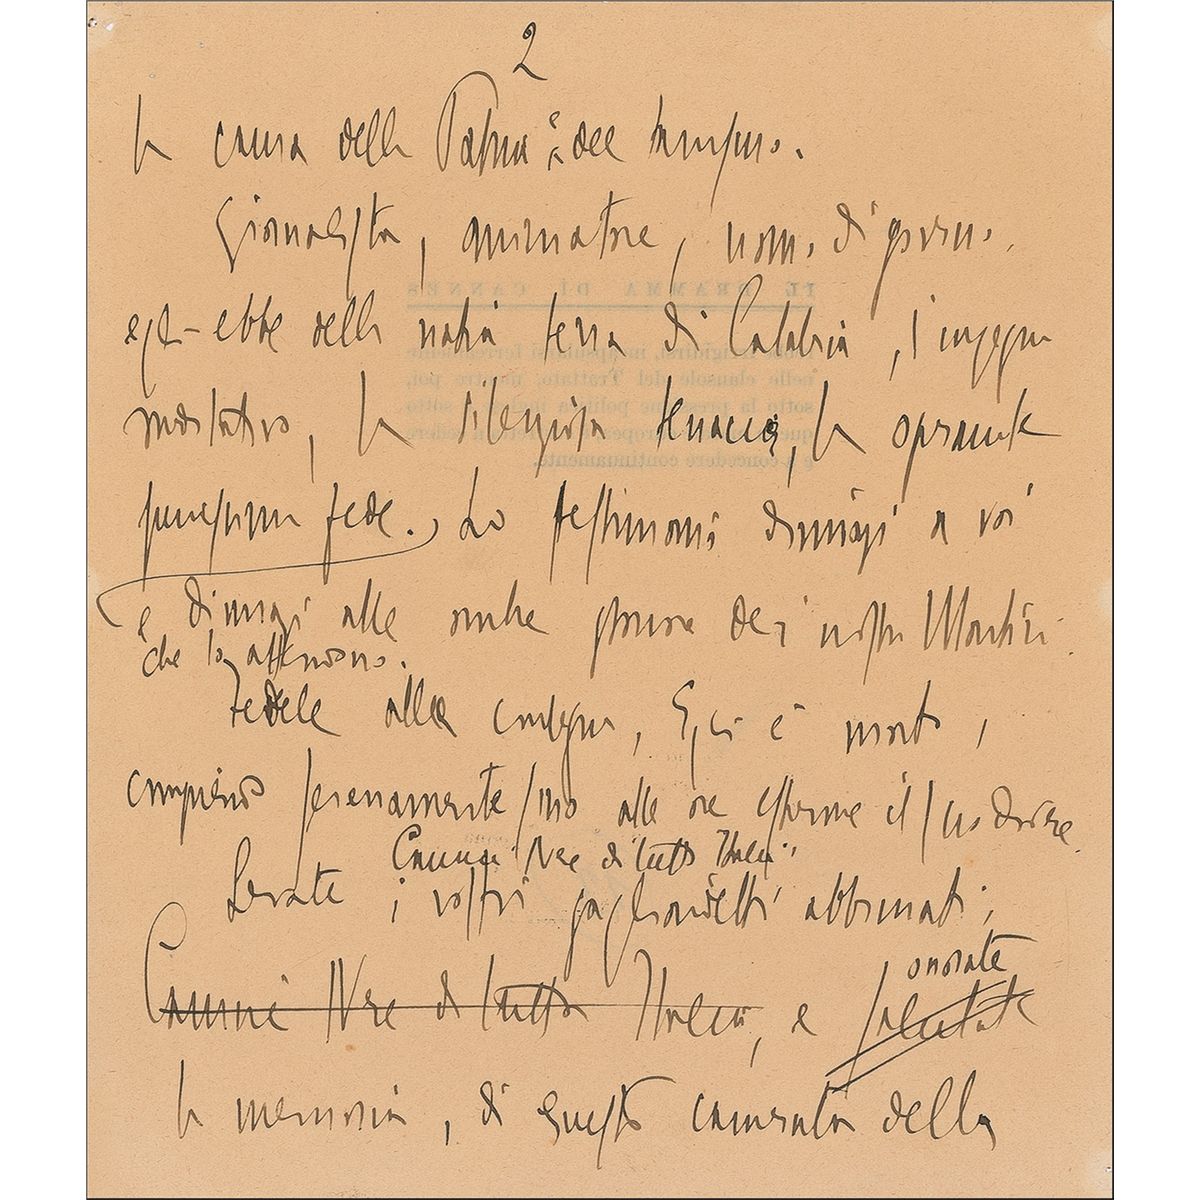 2
la causa della Patria e del
Giornalista, animatore, uomo di governo.
egli ebbe della natia terra di Calabria, l'ingegno
meditativo, la silenziosa tenacia, la operante
fede. Lo testimonio dinnazi a voi
e dinnazi alle ombre gloriose dei nostri Martiri
che lo attendono.
Fedele alla consegna, Egli è morto,
compiendo serenamente sino alle ore estreme il suo dovere.
Camicie Nere di tutta Italia
Levate i vostri gagliardetti abbrunati,
Camicie Nere di tutta Italia, e salutate
onorate
la memoria, di questo camerata della
IL DRAMMA DI CANNES
nelle clausole del Trattato, mentre poi,
sotto la pressione politica
e a concedere continuamente.